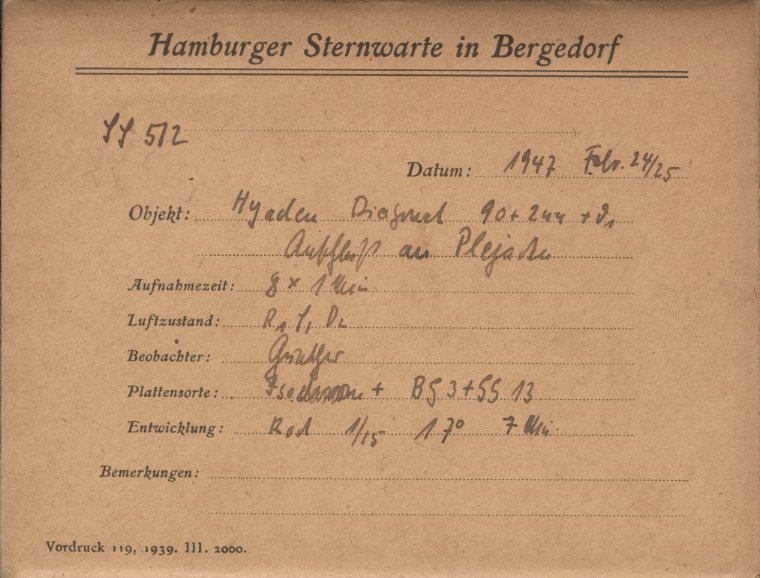 Hamburger Sternwarte in Bergedorf
SS 512
Datum: 1947 Febr. 24/25
Objekt: Hyaden Diagonal 90 + 244 +
Anschluß an Plejaden
Aufnahmezeit: 8 × 1 Min
Luftzustand: R1 S1 D2
Beobachter:
Plattensorte: + BG 3 + GG 13
Entwicklung: Rod 1/15 17° 7 Min
Bemerkungen:
Vordruck 119, 1939. III. 2000.